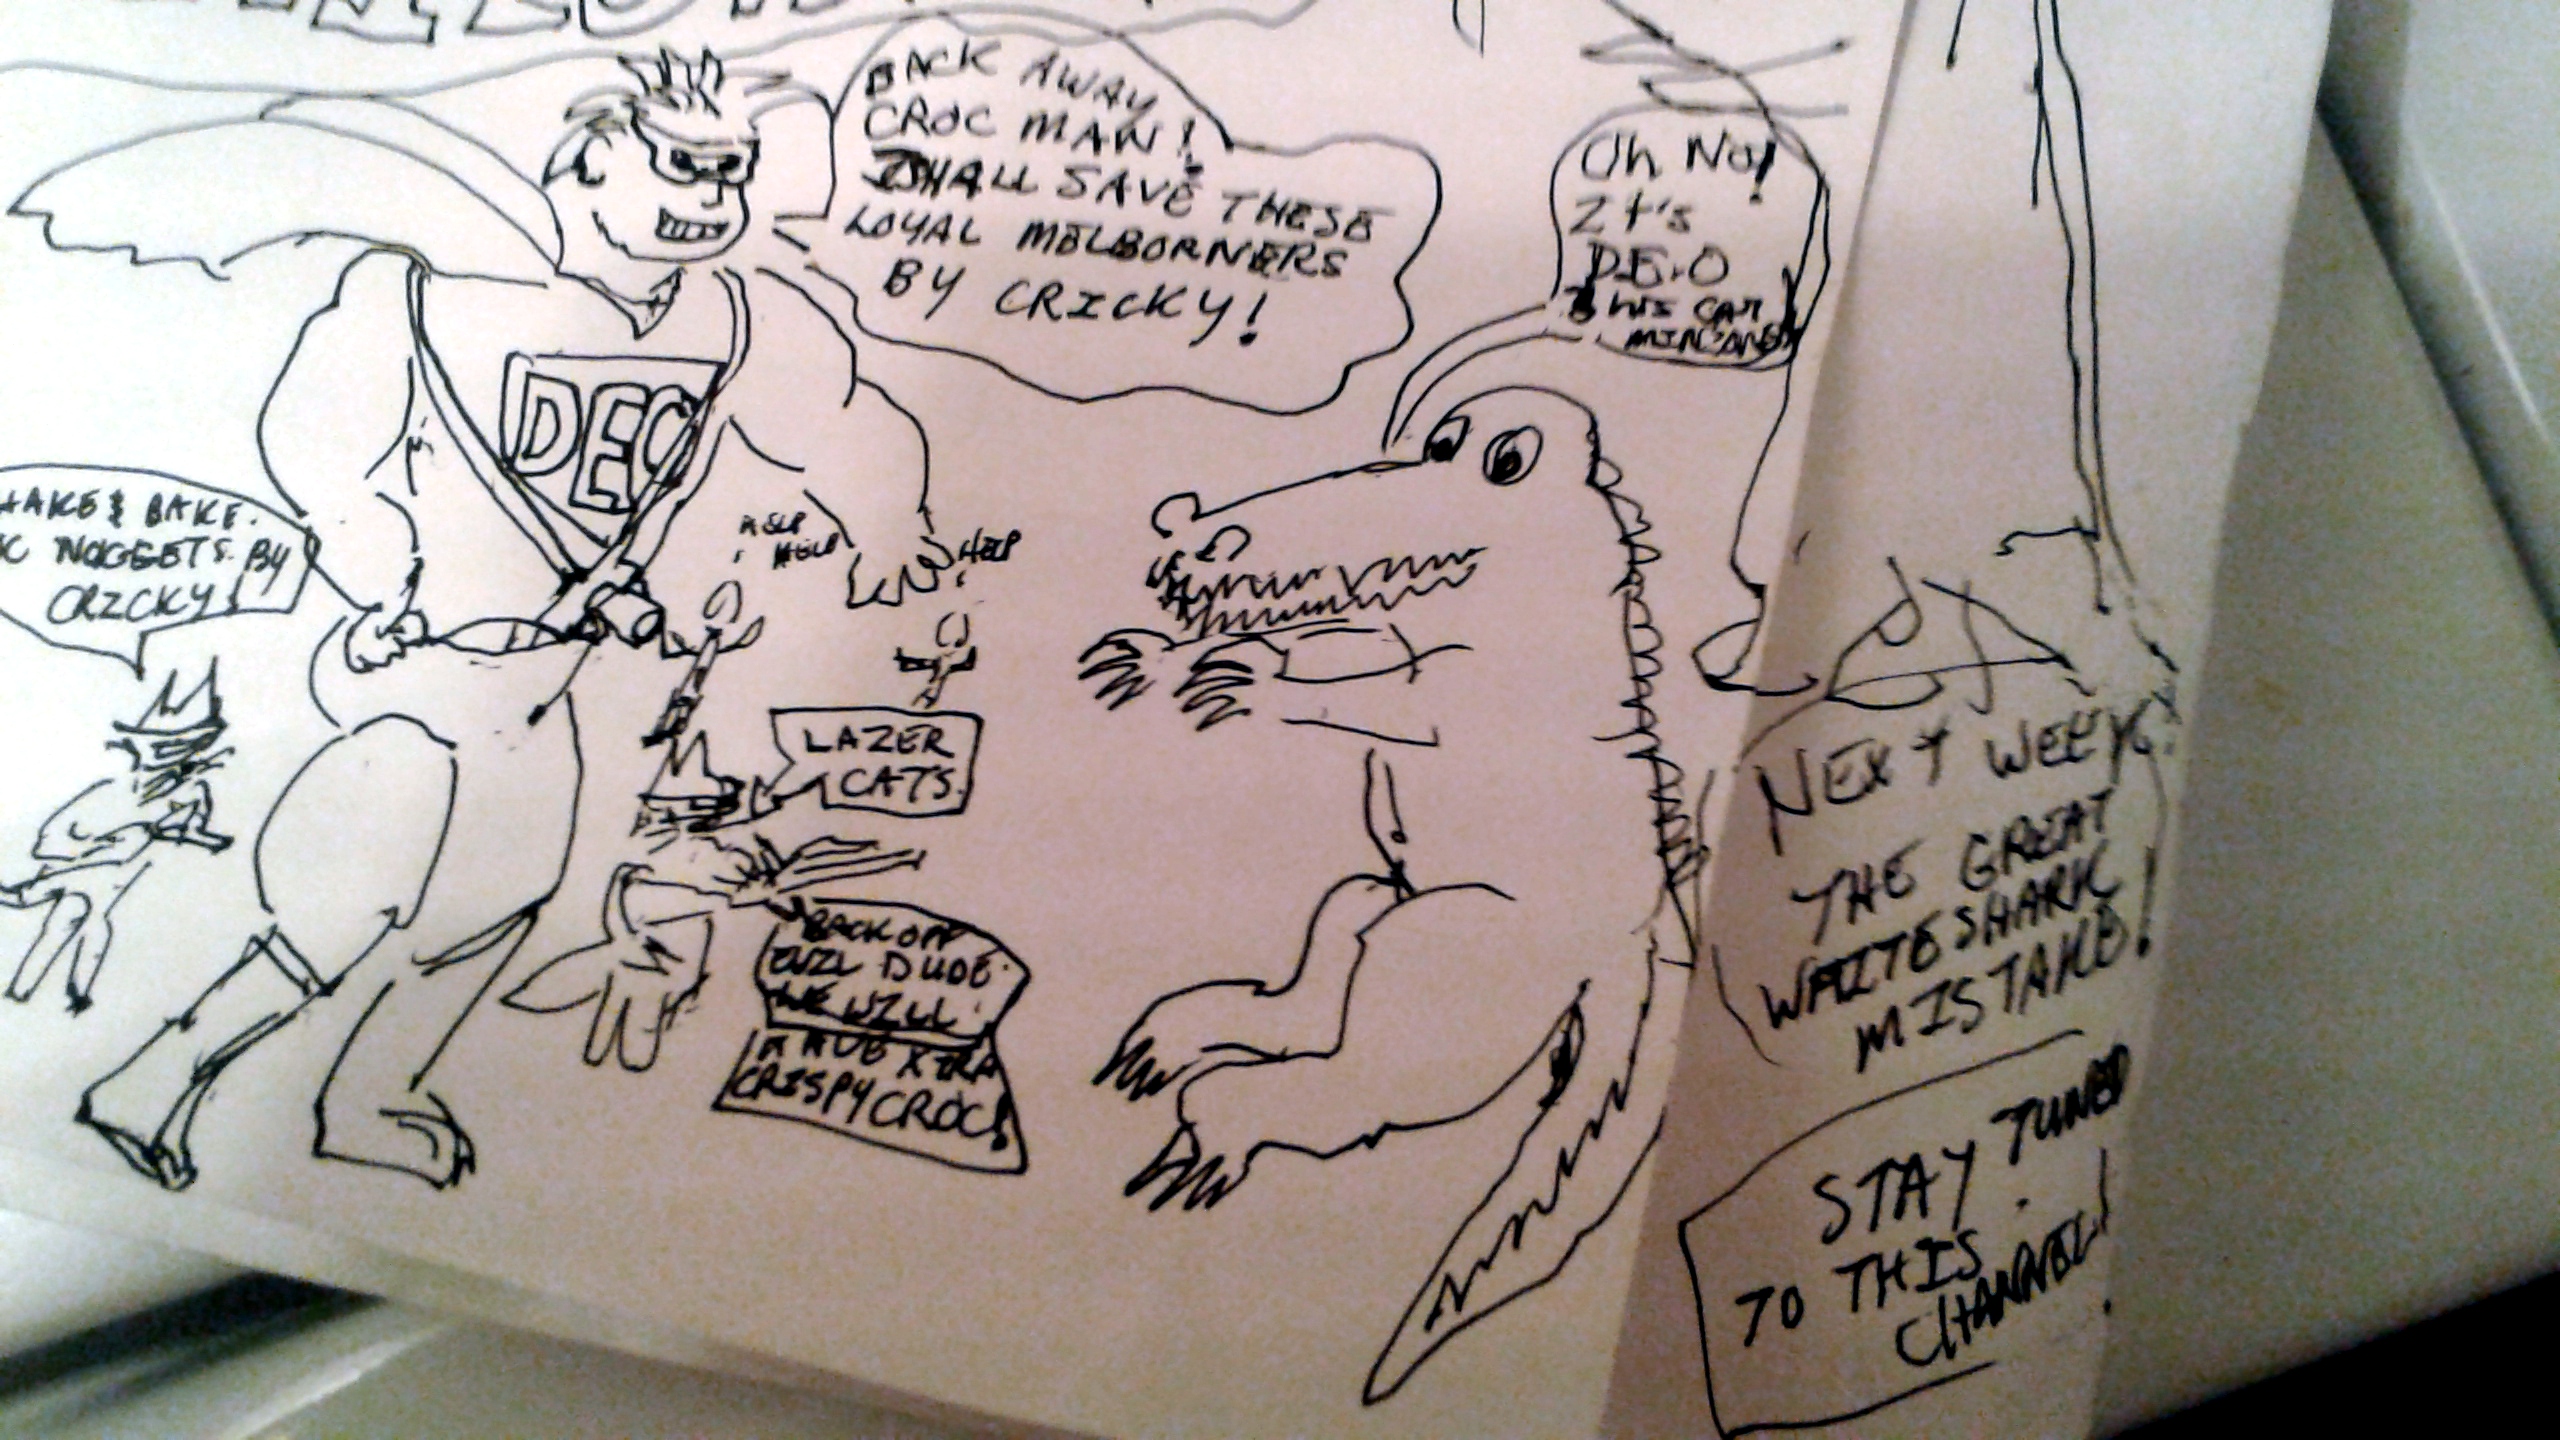 BACK AWAY
CROC MAN!
I SHALL SAVE THESE
LOYAL MELBORNERS
BY CRICKY!
Oh No!
It's
DEO
& HIS CAT
DEC
HAKE & BAKE.
NUGGETS. BY
CRICKY!
HELP
HELP
HELP
LAZER
CATS.
BACK OFF
EVIL DUDE.
WE WILL
HAVE XTRA
CRISPY CROC!
NEXT WEEK:
THE GREAT
WHITE SHARK
MISTAKE!
STAY TUNED
TO THIS
CHANNEL!